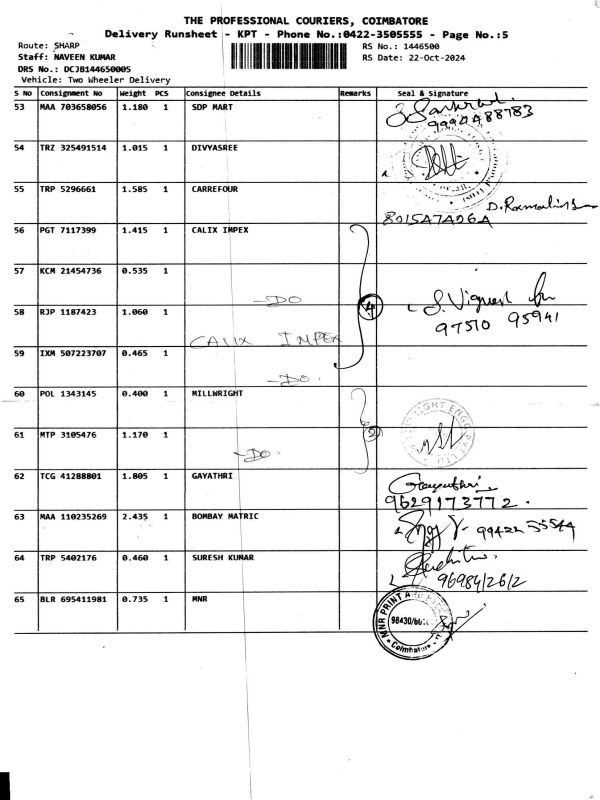 THE PROFESSIONAL COURIERS, COIMBATORE
Delivery Runsheet - KPT - Phone No.:0422-3505555 - Page No.:5
Route: SHARP
RS No.: 1446500
Staff: NAVEEN KUMAR
RS Date: 22-Oct-2024
DRS No.: DCJB144650005
Vehicle: Two Wheeler Delivery
S No Consignment No Weight PCS Consignee Details Remarks Seal & Signature
53 MAA 703658056 1.180 1 SDP MART
54 TRZ 325491514 1.015 1 DIVYASREE
55 TRP 5296661 1.585 1 CARREFOUR
56 PGT 7117399 1.415 1 CALIX IMPEX
57 KCM 21454736 0.535 1 -DO
58 RJP 1187423 1.060 1 CALIX IMPEX 4 97510 95941
59 IXM 507223707 0.465 1 -DO.
60 POL 1343145 0.400 1 MILLWRIGHT
61 MTP 3105476 1.170 1 -DO. 2
62 TCG 41288801 1.805 1 GAYATHRI Gayathri 9629173772.
63 MAA 110235269 2.435 1 BOMBAY MATRIC
64 TRP 5402176 0.460 1 SURESH KUMAR
65 BLR 695411981 0.735 1 MNR MNR PRINT Coimbatore